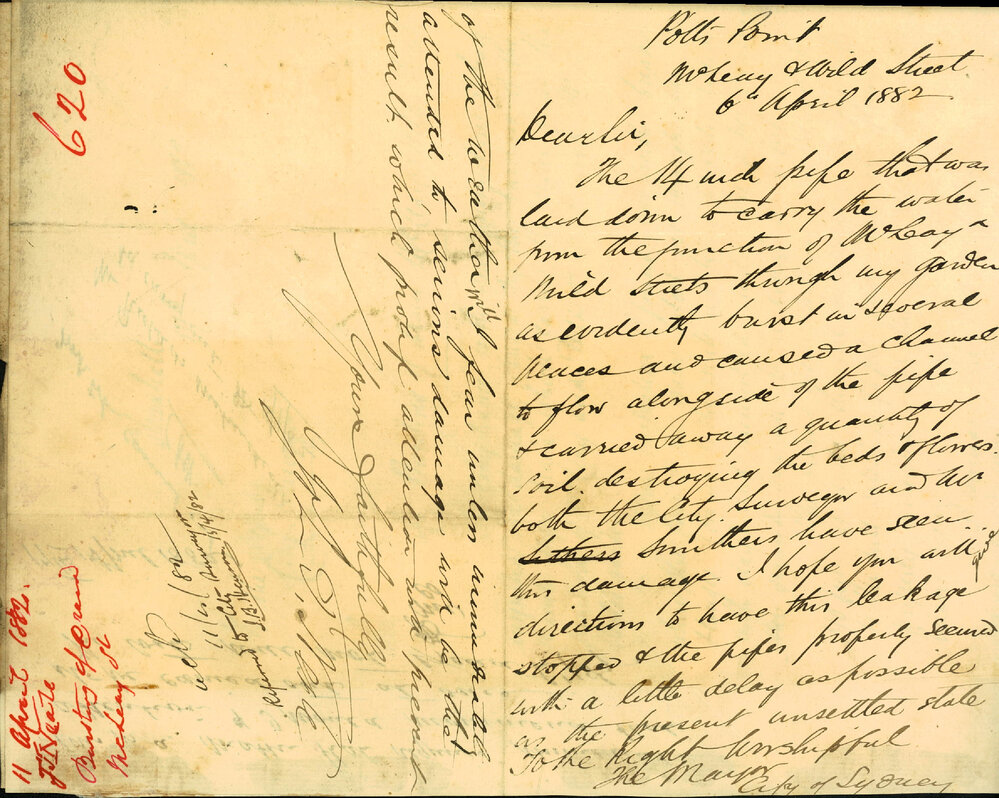 Potts Point
McLeay & Wild Street
6th April 1882
Dear Sir,
The 14 inch pipe that was
laid down to carry the water
from the junction of McLeay &
Wild Steets through my garden
as evidently burst in several
places and caused a channel
to flow alongside of the pipe
& carried away a quantity of
soil, destroying the beds & flowers.
both the City Surveyor and Mr
Smithers Smithers have seen
this damage. I hope you will give
directions to have this leakage
stopped & the pipes properly secured
with a little delay as possible
as the present unsettled state
To the Right Worshipful
The Mayor
City of Sydney
of the weather will I fear unless immediately
attended to, serious damage will be the
result, which prompt attention will prevent
Yours faithfully
John
11/4/82
Referred to City Surveyor
620
11 April 1882.
J. Neale
Bursting of Drain
McLeay St